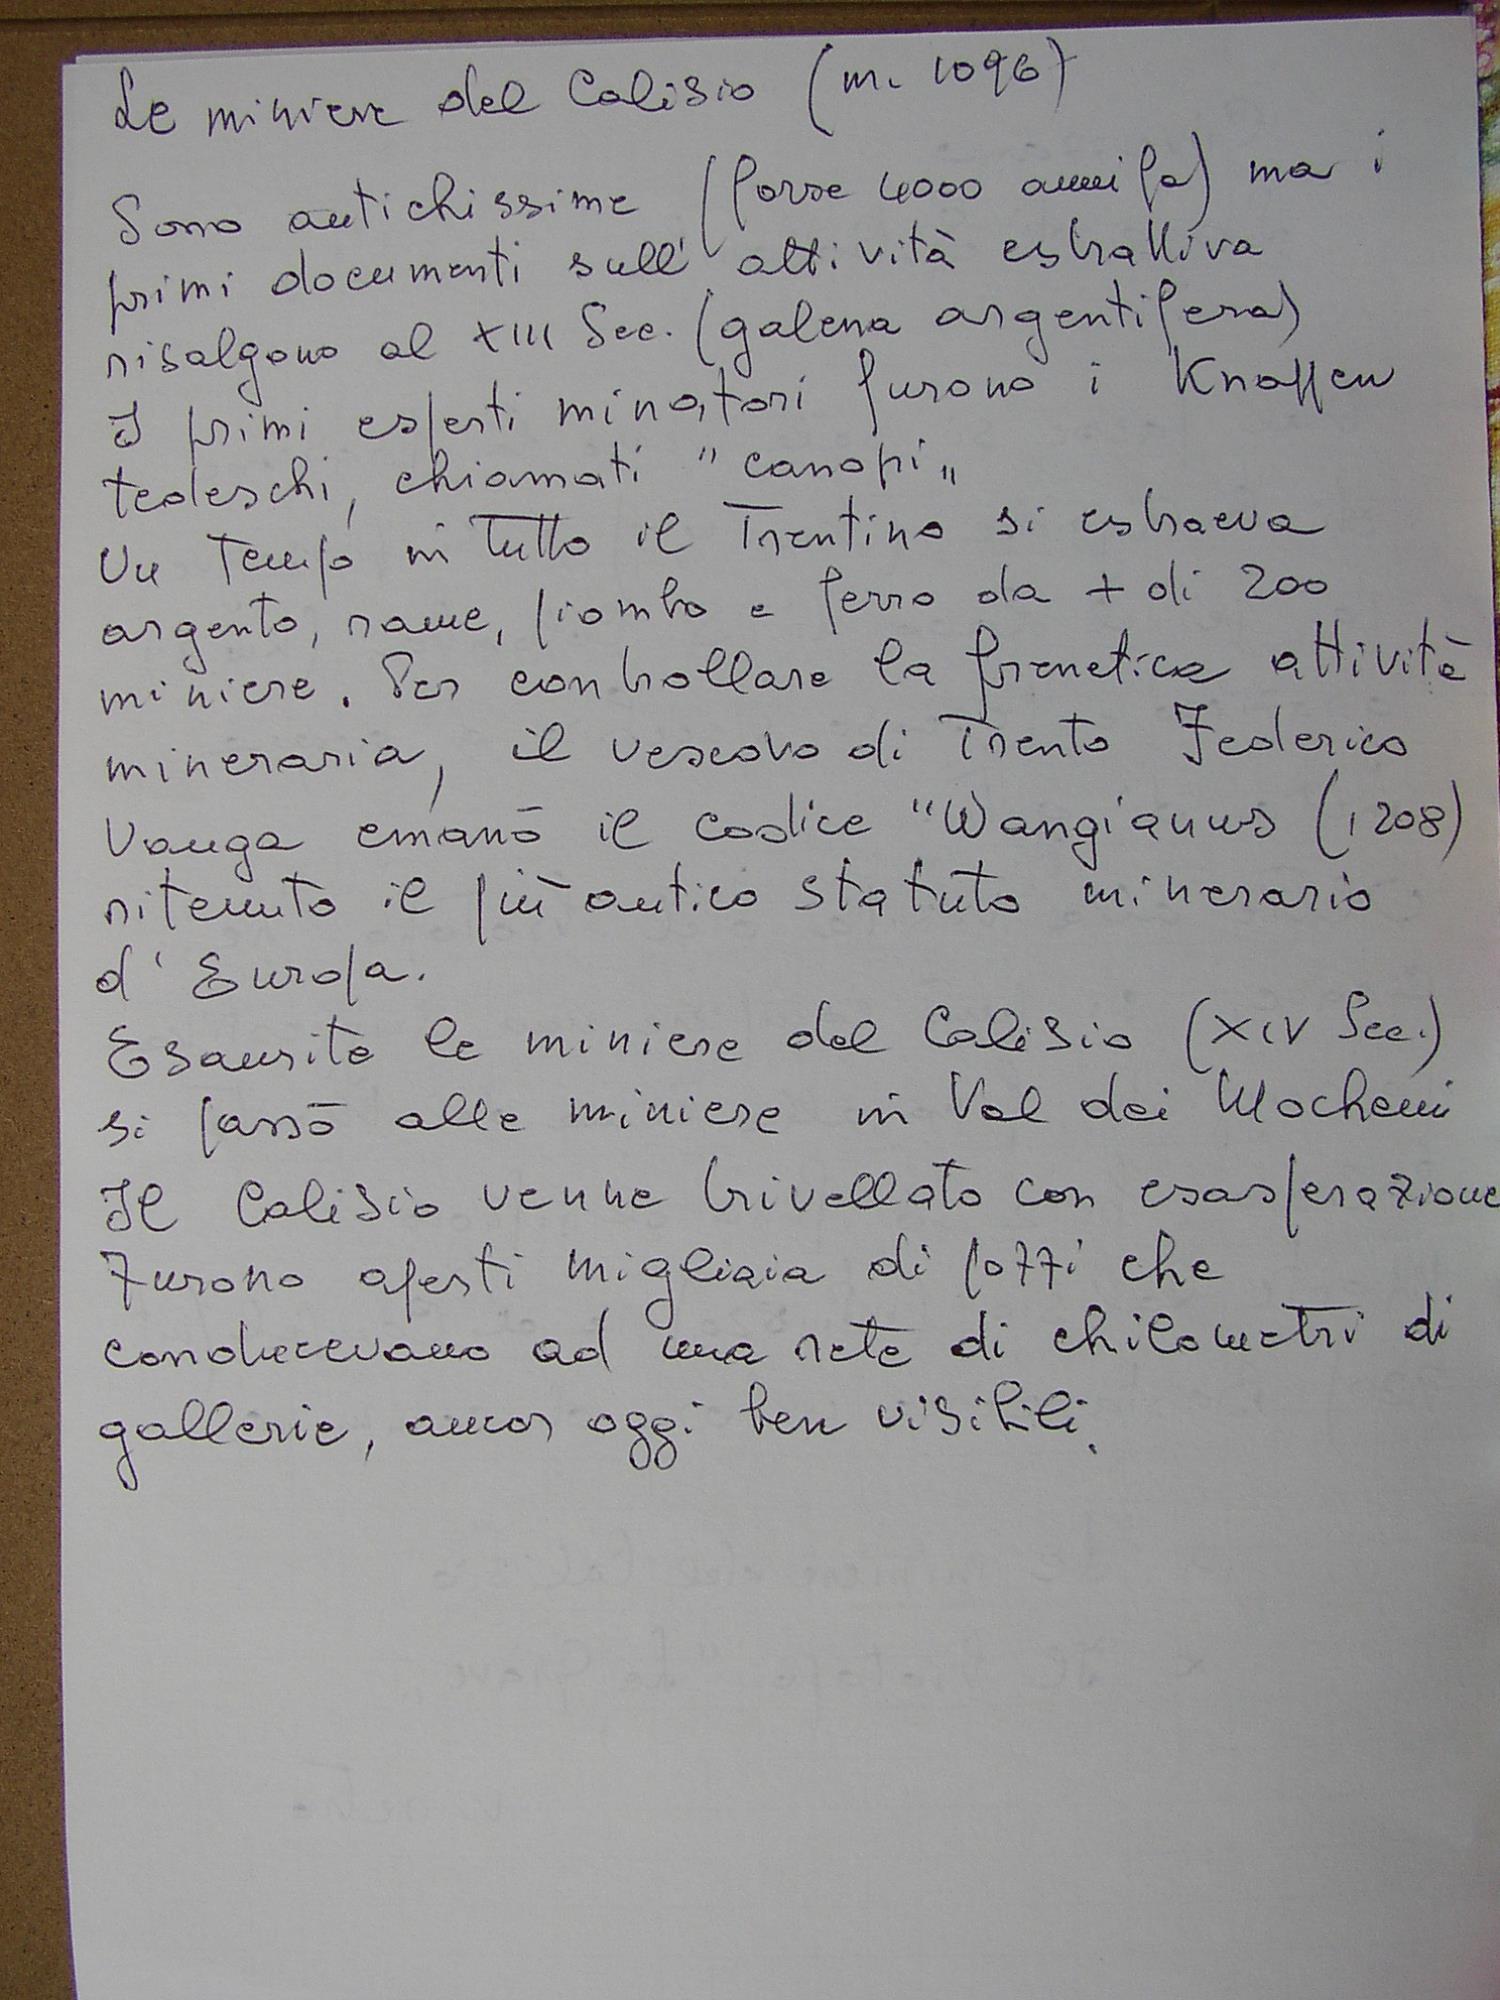 Le miniere del Calisio (m. 1096)
Sono antichissime (forse 4000 anni fa) ma i
primi documenti sull'attività estrattiva
risalgono al XIII Sec. (galena argentifera)
I primi esperti minatori furono i Knappen
tedeschi, chiamati "canopi"
Un tempo in tutto il Trentino si estraeva
argento, rame, piombo e ferro da + di 200
miniere. Per controllare la frenetica attività
mineraria, il vescovo di Trento Federico
Vanga emanò il codice "Wangianus (1208)
ritenuto il più antico statuto minerario
d'Europa.
Esaurite le miniere del Calisio (XIV Sec.)
si passò alle miniere in Val dei Mocheni
Il Calisio venne trivellato con esasperazione
Furono aperti migliaia di pozzi che
conducevano ad una rete di chilometri di
gallerie, ancor oggi ben visibili.